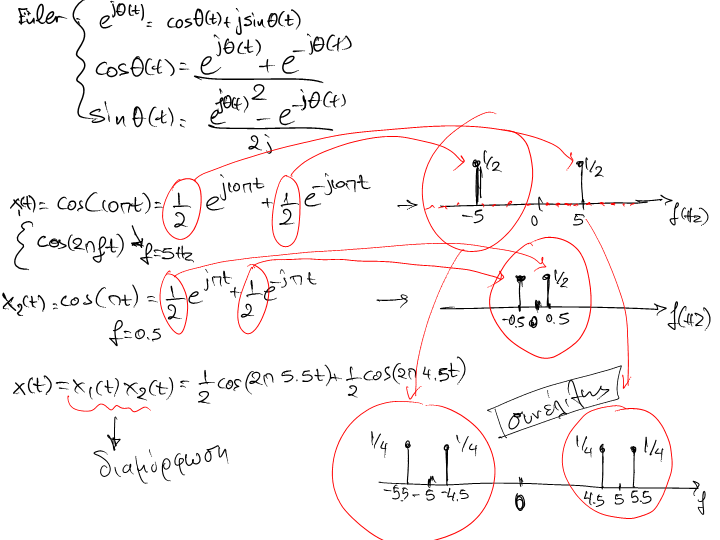 Euler e^{jθ(t)} = cosθ(t)+jsinθ(t)
cosθ(t) = (e^{jθ(t)} + e^{-jθ(t)}) / 2
sinθ(t) = (e^{jθ(t)} - e^{-jθ(t)}) / 2j
x₁(t) = cos(10πt) = 1/2 e^{j10πt} + 1/2 e^{-j10πt} →
cos(2πft) → f=5Hz
1/2 1/2
-5 0 5 f(Hz)
x₂(t) = cos(πt) = 1/2 e^{jπt} + 1/2 e^{-jπt} →
f=0.5
1/2
-0.5 0 0.5 f(Hz)
x(t) = x₁(t) x₂(t) = 1/2 cos(2π 5.5t) + 1/2 cos(2π 4.5t)
διαμόρφωση
συνέλιξης
1/4 1/4 1/4 1/4
-5.5 -5 -4.5 0 4.5 5 5.5 f